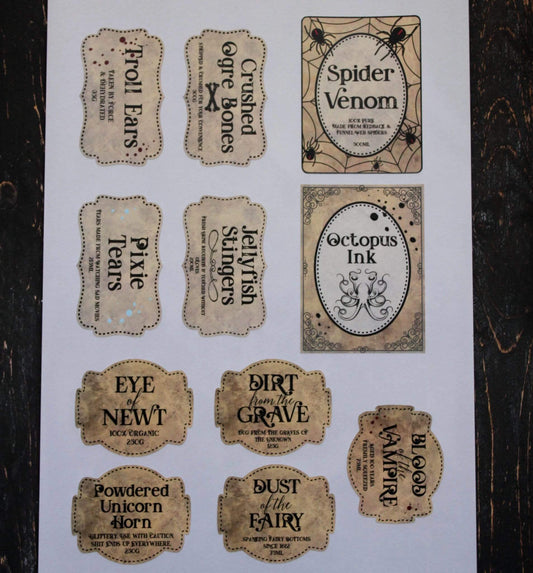 Troll Ears
TAKEN BY FORCE
& DEHYDRATED
Crushed
Ogre Bones
STRIPPED & CRUSHED FOR YOUR CONVENIENCE
Spider
Venom
100% PURE
MADE FROM REDBACK &
FUNNEL-WEB SPIDERS
500ML
Pixie
Tears
TEARS MADE FROM WATCHING SAD MOVIES
Jellyfish
Stingers
Octopus
Ink
EYE
of
NEWT
100% ORGANIC
250G
DIRT
from the
GRAVE
DUG FROM THE GRAVES OF
THE UNKNOWN
BLOOD
of the
VAMPIRE
FRESHLY SQUEEZED
Powdered
Unicorn
Horn
GLITTERY, USE WITH CAUTION,
SHIT ENDS UP EVERYWHERE.
250G
DUST
of the
FAIRY
SPANKING FAIRY BOTTOMS
SINCE 1682